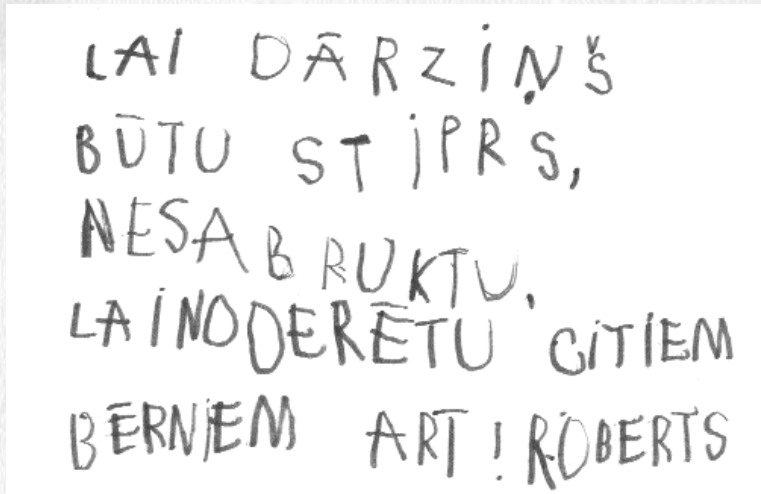 LAI DĀRZIŅŠ
BŪTU STIPRS,
NESABRUKTU,
LAINODERĒTU CITIEM
BĒRNIEM ART! ROBERTS